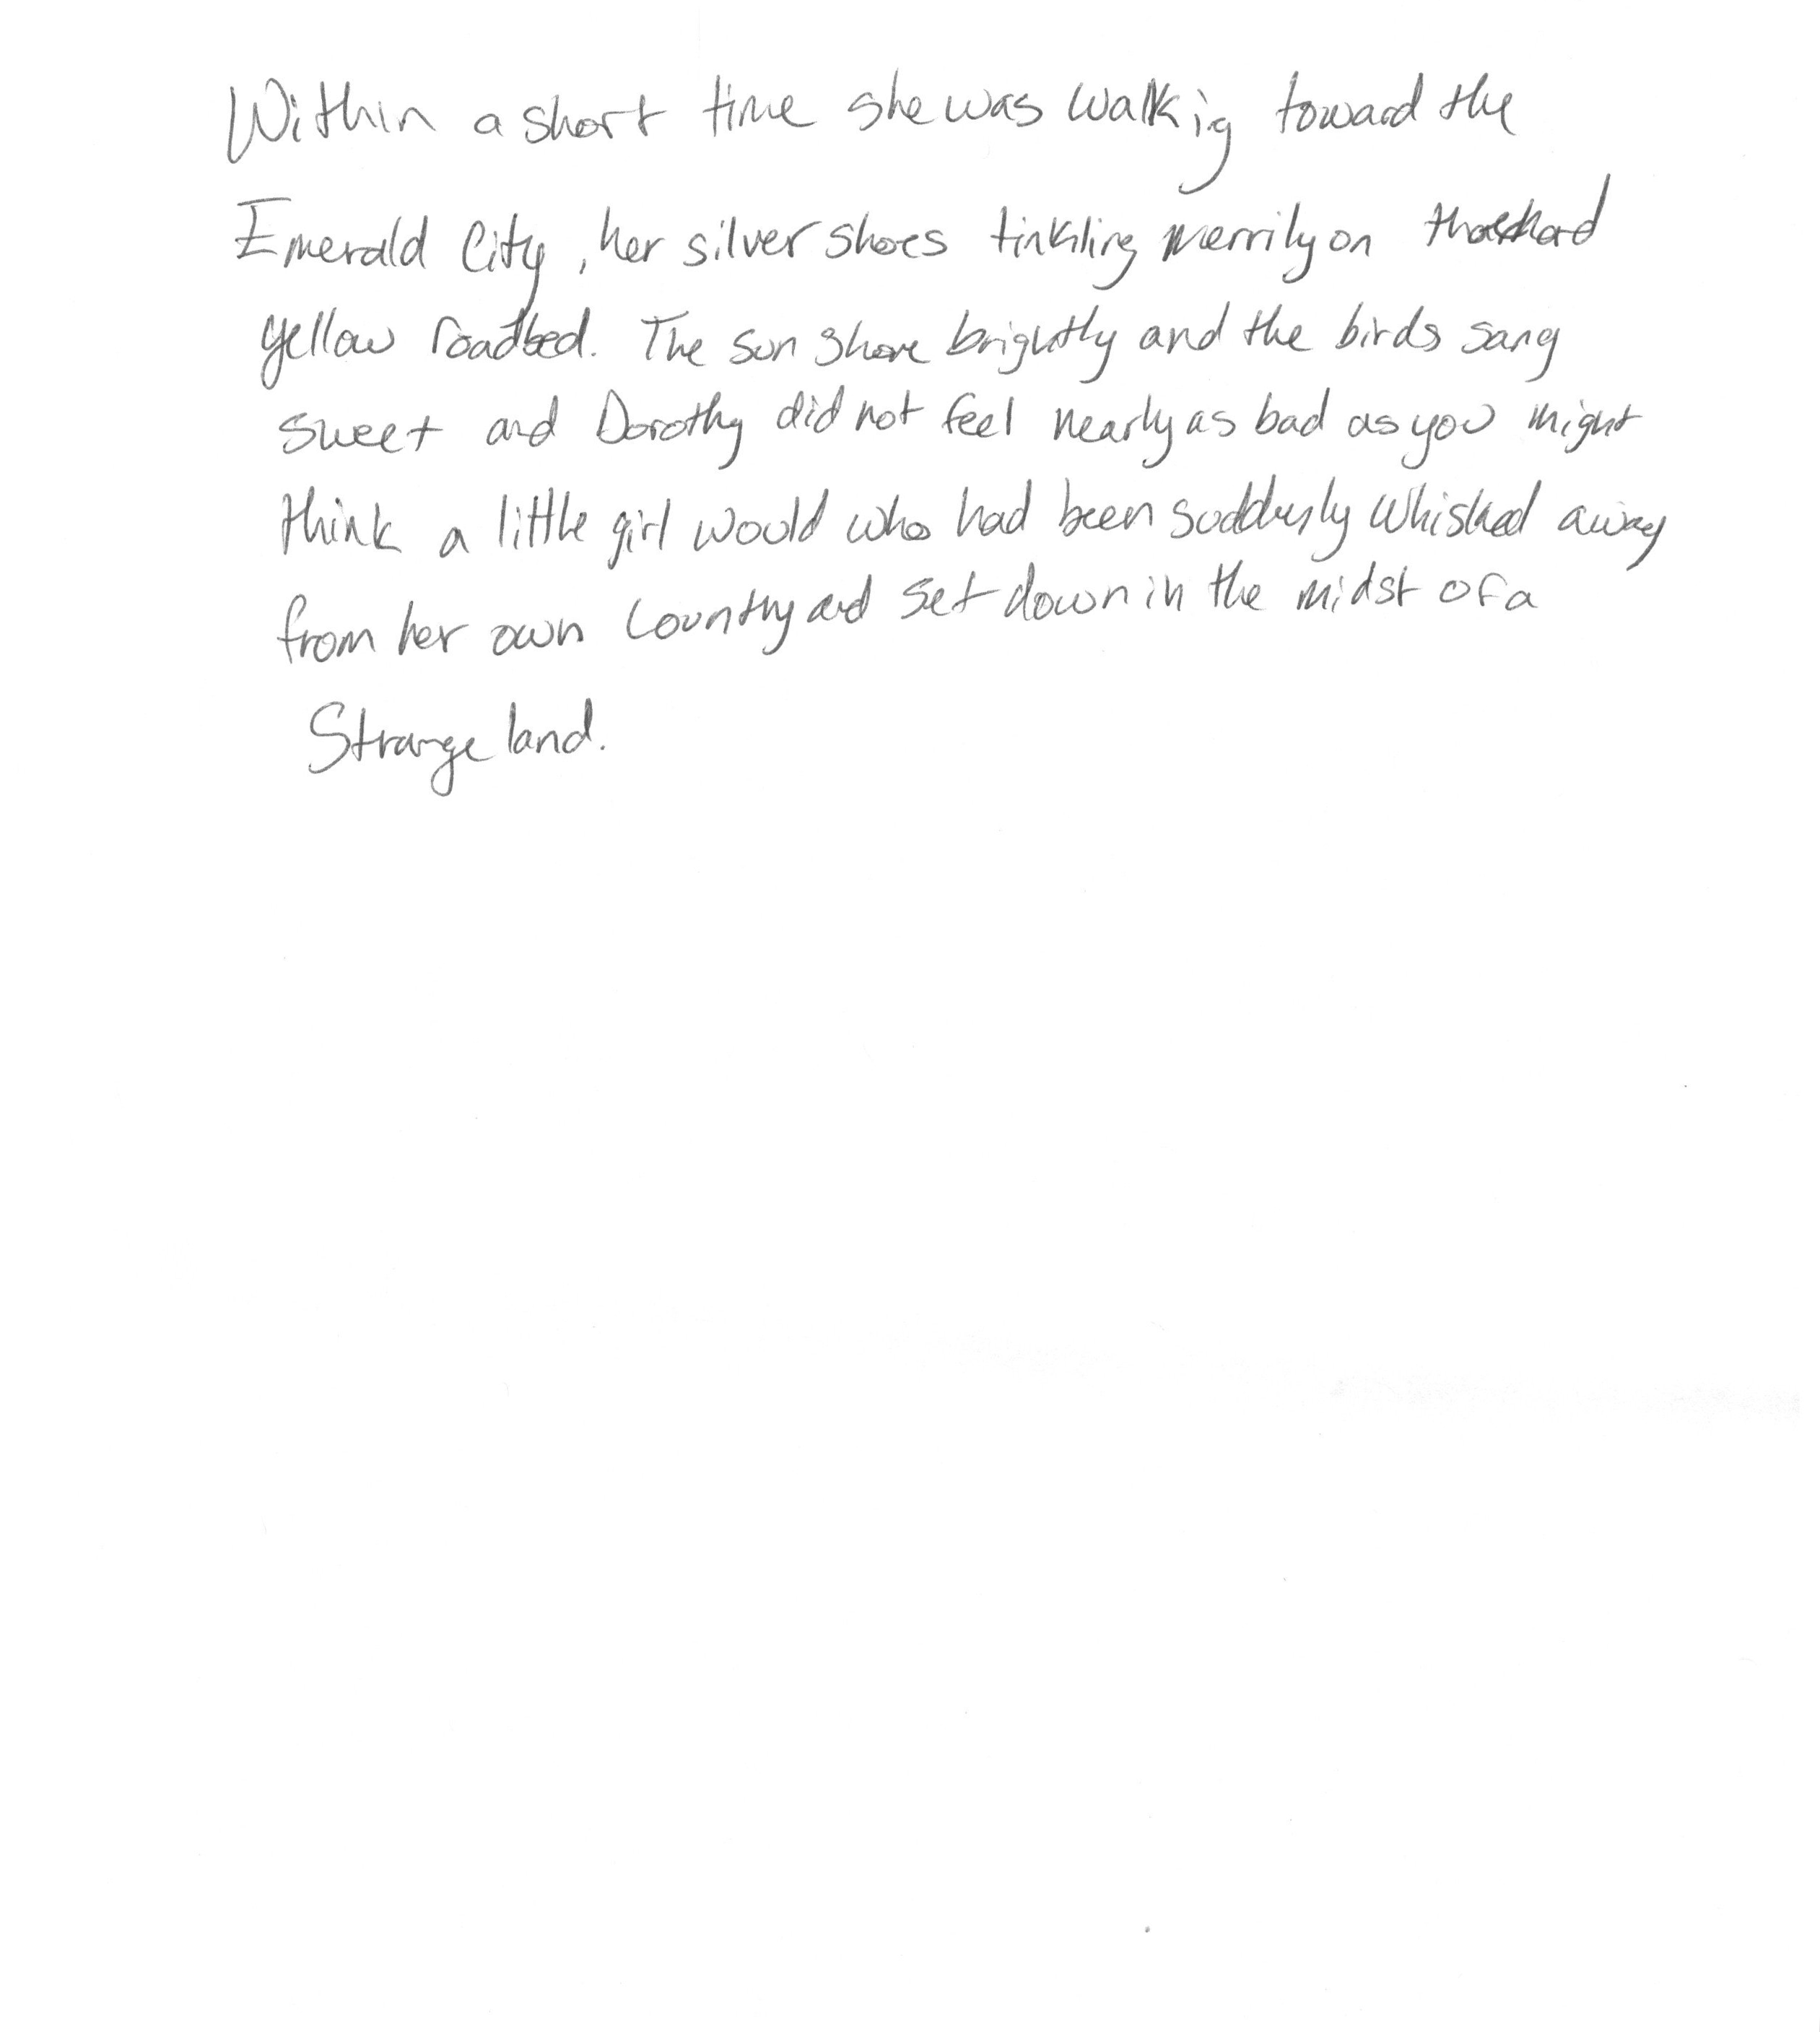 Within a short time she was walkig toward the
Emerald City, her silver shoes tinkling merrily on hard
yellow roadbed. The sun shone brightly and the birds sang
sweet and Dorothy did not feel nearly as bad as you might
think a little girl would who had been suddenly whisked away
from her own country and set down in the midst of a
Strange land.